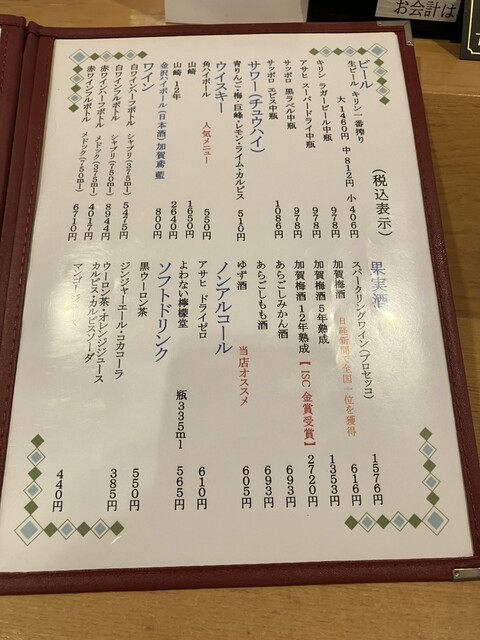 お会計は
ビール (税込表示)
生ビール キリン一番搾り
大 1460円 中 812円 小 406円
キリン ラガービール中瓶 978円
アサヒ スーパードライ中瓶 978円
サッポロ 黒ラベル中瓶 978円
サッポロ エビス中瓶 1086円
サワー(チュウハイ)
青りんご・梅・巨峰・レモン・ライム・カルピス 510円
ウイスキー
角ハイボール 人気メニュー 550円
山崎 1650円
山崎 12年 2640円
金沢ハイボール(日本酒)加賀鳶 藍 800円
ワイン
白ワインハーフボトル シャブリ(375ml) 5475円
白ワインフルボトル シャブリ(750ml) 8944円
赤ワインハーフボトル メドック(375ml) 4017円
赤ワインフルボトル メドック(750ml) 6710円
果実酒
スパークリングワイン(プロセッコ) 1576円
加賀梅酒 日経新聞で全国一位を獲得 616円
加賀梅酒 5年熟成 1353円
加賀梅酒 12年熟成【ISC 金賞受賞】 2720円
あらごしみかん酒 693円
あらごしもも酒 693円
ゆず酒 当店オススメ 605円
ノンアルコール
アサヒ ドライゼロ 610円
よわない檸檬堂 瓶335ml 565円
ソフトドリンク
黒ウーロン茶 550円
ジンジャーエール・コカコーラ
ウーロン茶・オレンジジュース 385円
カルピス・カルピスソーダ
440円